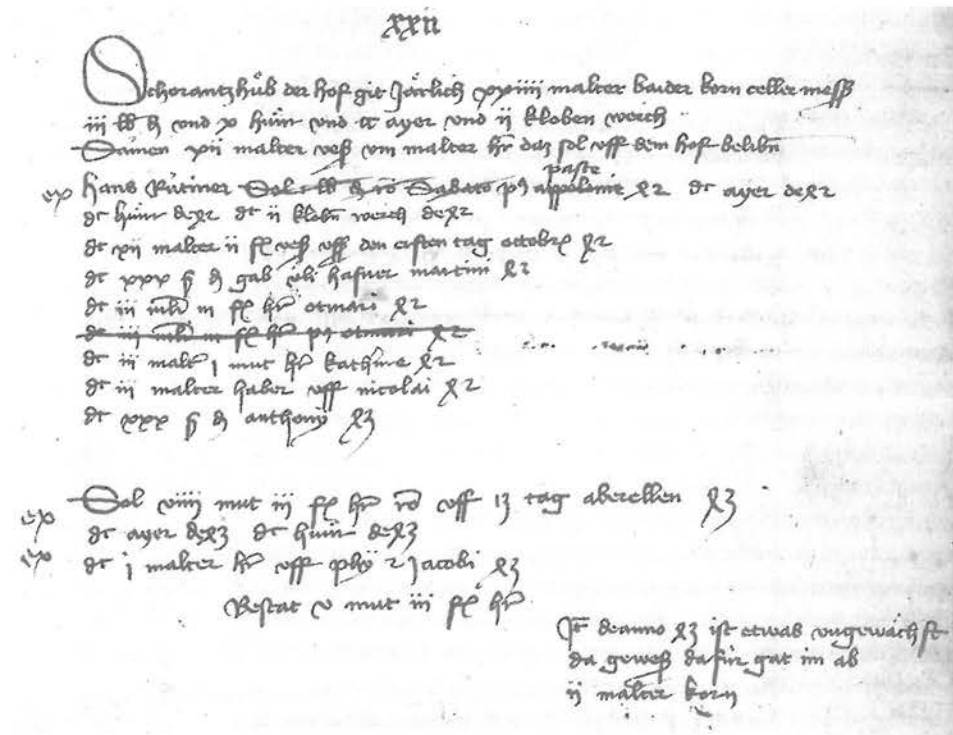 xxii
Schorantzhůb der hof git Järlich xxiiii malter baider korn celler mess
iii lb d und x hůnr und cc ayer und ii kloben werch
xii malter vess viii malter hr daz sol uff dem hof beliben
paste
ex hans Rütiner Sol lb d ro Sabato p9 appolonie 82 dt ayer de 82
dt hůnr de 82 dt ii kloben werch de 82
dt xii malter ii fl vess uff den ersten tag octobr 82
dt xxx ß d gab üli hafner martini 82
dt iii mltr iii fl hr otmari 82
dt iii mltr iii fl hr p9 otmari 82
dt iii maltr j mut hr kathrine 82
dt iii malter haber uff nicolai 82
dt xxx ß d anthonÿ 83
Sol viiii mut iii fl hr ro uff 13 tag aberellen 83
ex dt ayer de 83 dt hůnr de 83
ex dt j malter hr uff phÿ 2 Jacobi 83
Restat v mut iii fl hr
It de anno 83 ist etwas ungewächst
da gewess dafür gat im ab
ii malter korn